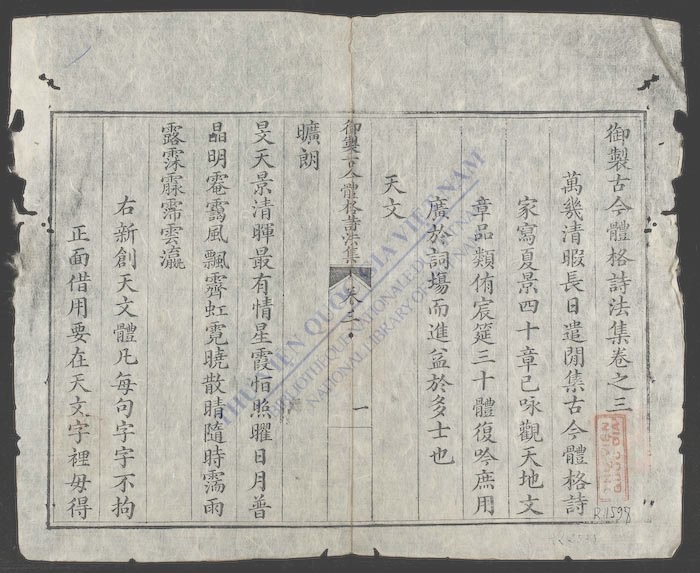 御製古今體格詩法集卷之三
萬幾清暇長日遣閒集古今體格詩
家寫夏景四十章已咏觀天地文
章品類侑宸筵三十體復吟庶用
廣於詞場而進益於多士也
天文
御製古今體格詩法集 卷三 一
曠朗
旻天景清暉最有情星霞恒照曜日月普
晶明霮靄風飄霽虹霓曉散晴隨時霑雨
露霂霢霈雲瀛
右新創天文體凡每句字字不拘
正面借用要在天文字裡毋得
THU VIEN QUOC GIA VIET NAM
BIBLIOTHEQUE NATIONALE DU VIETNAM
NATIONAL LIBRARY OF VIETNAM
R.1597